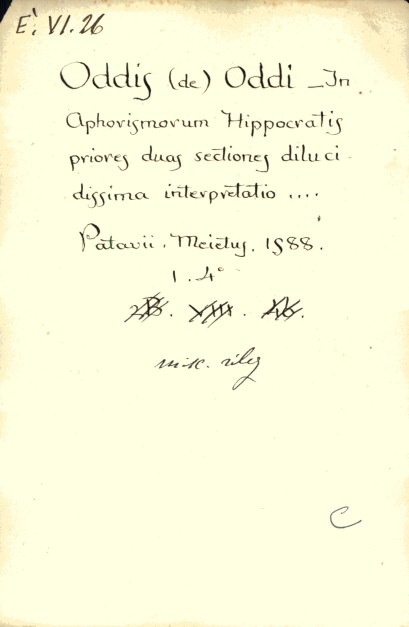 E. VI. 26
Oddis (de) Oddi _ In
Aphorismorum Hippocratis
priores duas sectiones diluci
dissima interpretatio ....
Patavii. Meietus. 1588.
1. 4°
XVIII.
C